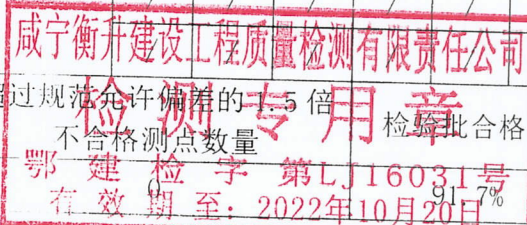 咸宁衡升建设工程质量检测有限责任公司
过规范允许偏差的1.5倍
不合格测点数量
检验批合格
检测专用章
鄂建检字第LJ16031号
0
91.7%
有效期至：2022年10月20日